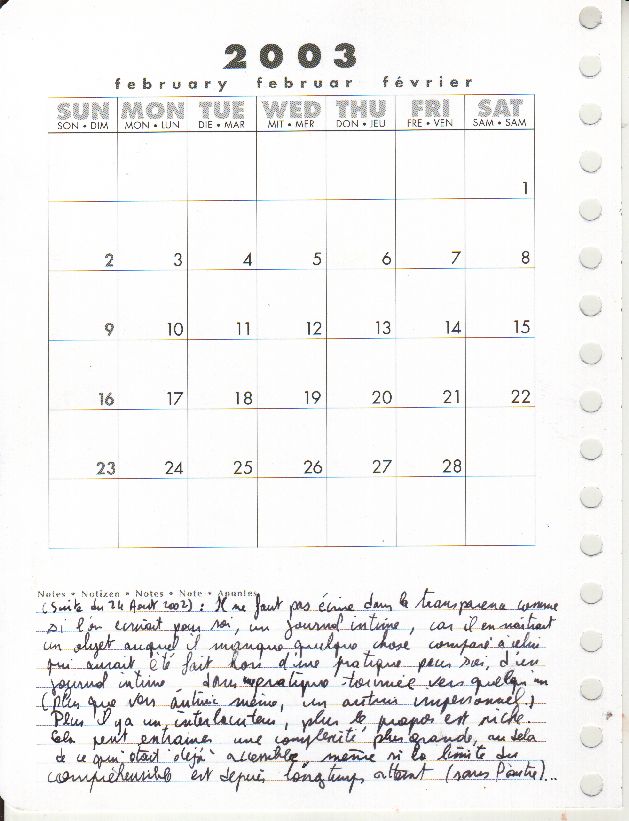 2003
february februar février
SUN MON TUE WED THU FRI SAT
SON • DIM MON • LUN DIE • MAR MIT • MER DON • JEU FRE • VEN SAM • SAM
1
2 3 4 5 6 7 8
9 10 11 12 13 14 15
16 17 18 19 20 21 22
23 24 25 26 27 28
Notes • Notizen • Notes • Note • Apuntes
(Suite du 24 Août 2002) : Il ne faut pas écrire dans la transparence comme
si l'on écrivait pour soi, un journal intime, car il en naîtrait
un objet auquel il manque quelque chose comparé à celui
qui aurait été fait hors d'une pratique pour soi, d'un
journal intime, dans une pratique tournée vers quelqu'un
(plus que vers autrui même, un autrui impersonnel)
Plus il y a un interlocuteur, plus le propos est riche.
Cela peut entraîner une complexité plus grande, au delà
de ce qui était déjà accessible, même si la limite du
compréhensible est depuis longtemps atteint (sans l'autre)...